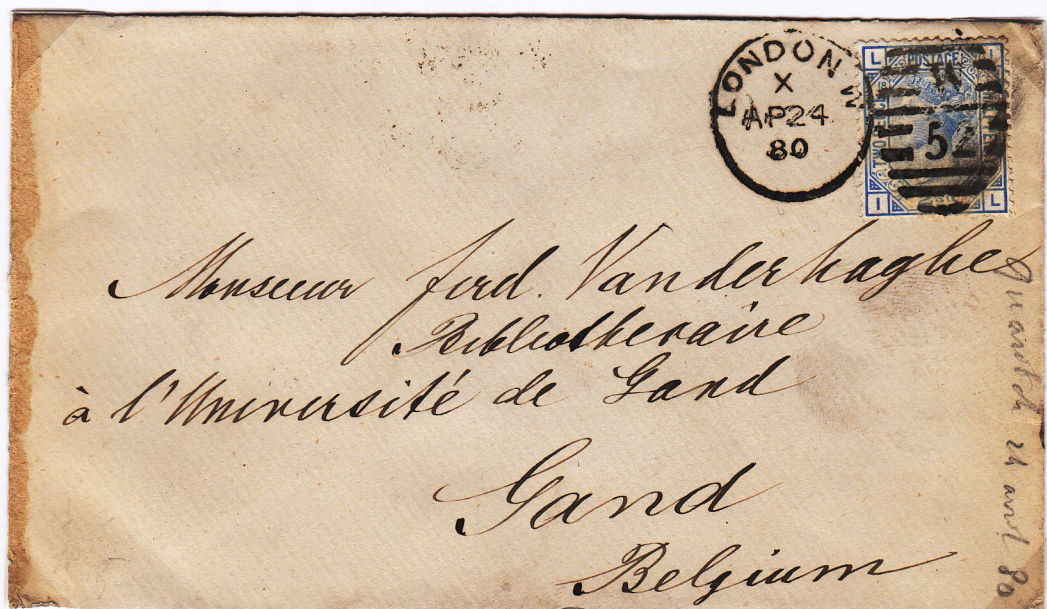 LONDON W
X
AP 24
80
W
52
L L
POSTAGE
TWO PENCE
I L
Monsieur ferd. Vanderhaghe
Bibliothecaire
à l'Université de Gand
Gand
Belgium
Quaritch 24 avril 80